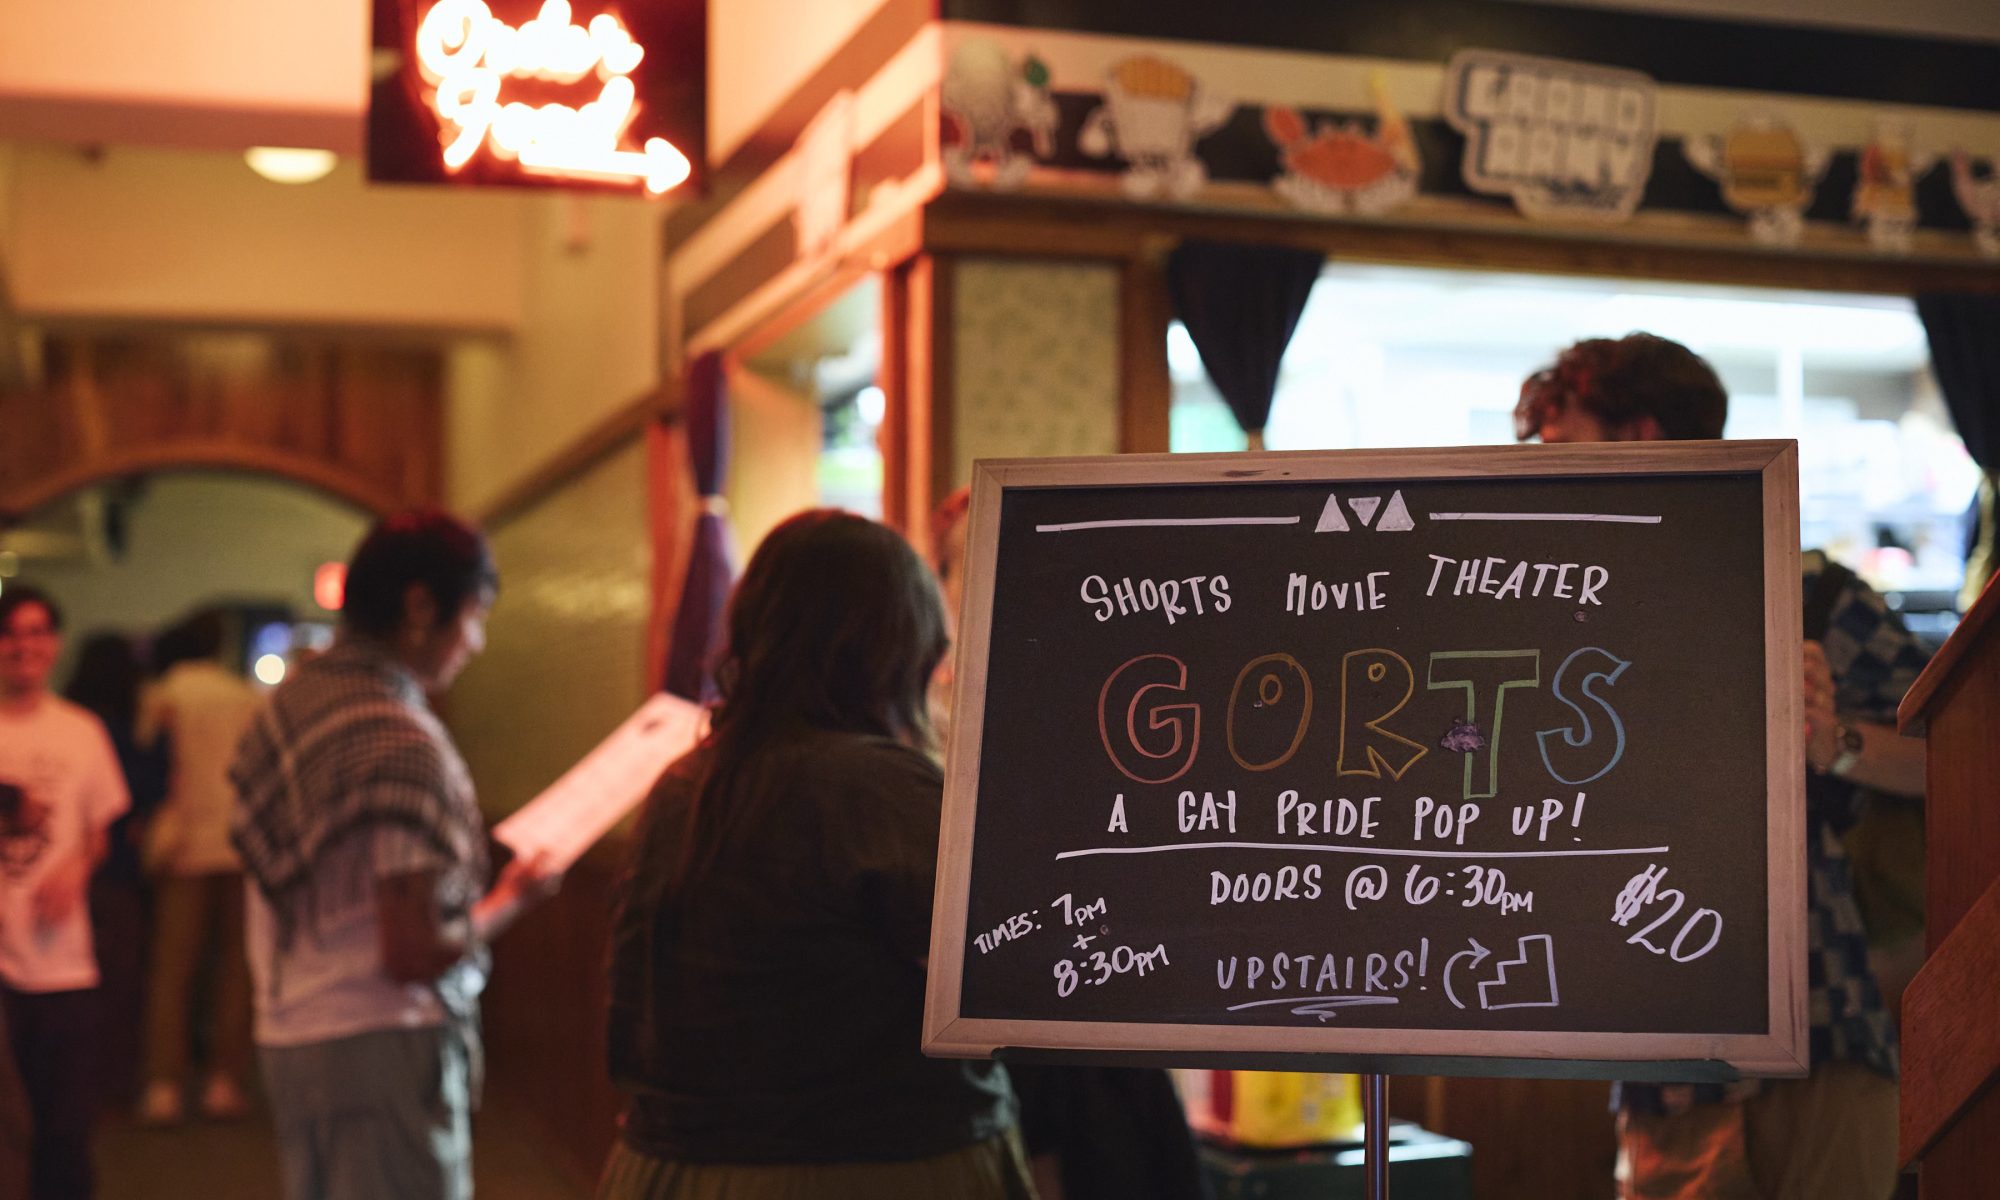 Order
Food
GRAND
ARMY
SHORTS MOVIE THEATER
GORTS
A GAY PRIDE POP UP!
DOORS @ 6:30PM
TIMES: 7PM
+
8:30PM
$20
UPSTAIRS!